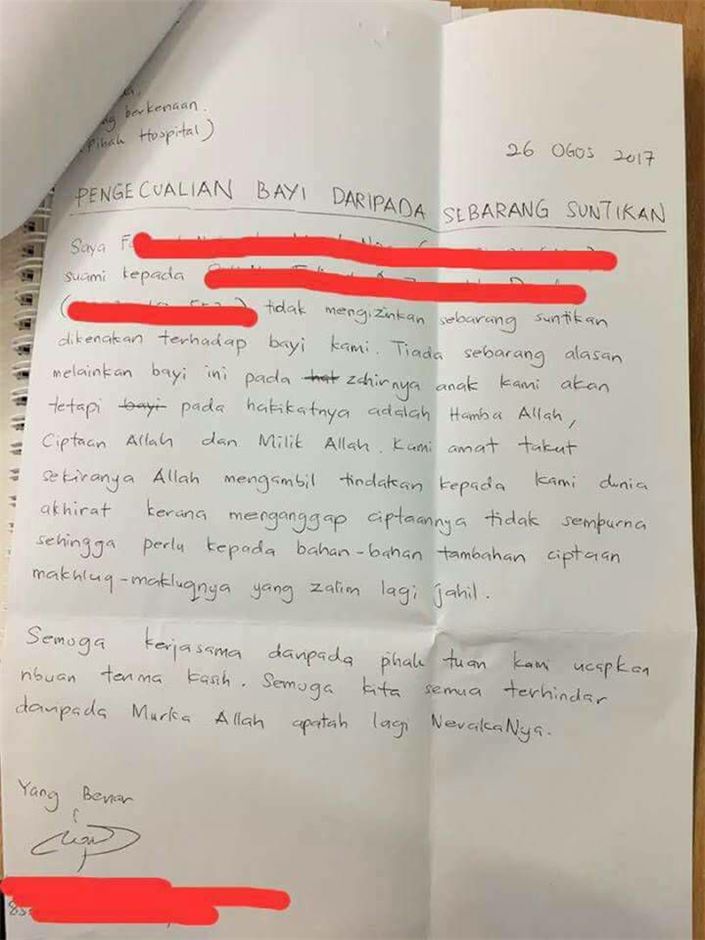 berkenaan.
Pihak Hospital)
26 OGOS 2017
PENGECUALIAN BAYI DARIPADA SEBARANG SUNTIKAN
Saya
suami kepada
( ) tidak mengizinkan sebarang suntikan
dikenakan terhadap bayi kami. Tiada sebarang alasan
melainkan bayi ini pada zahirnya anak kami akan
tetapi bayi pada hakikatnya adalah Hamba Allah,
Ciptaan Allah dan Milik Allah. Kami amat takut
sekiranya Allah mengambil tindakan kepada kami dunia
akhirat kerana menganggap ciptaannya tidak sempurna
sehingga perlu kepada bahan-bahan tambahan ciptaan
makhluq-makluqnya yang zalim lagi jahil.
Semoga kerjasama daripada pihak tuan kami ucapkan
ribuan terima kasih. Semoga kita semua terhindar
daripada Murka Allah apatah lagi NerakaNya.
Yang Benar